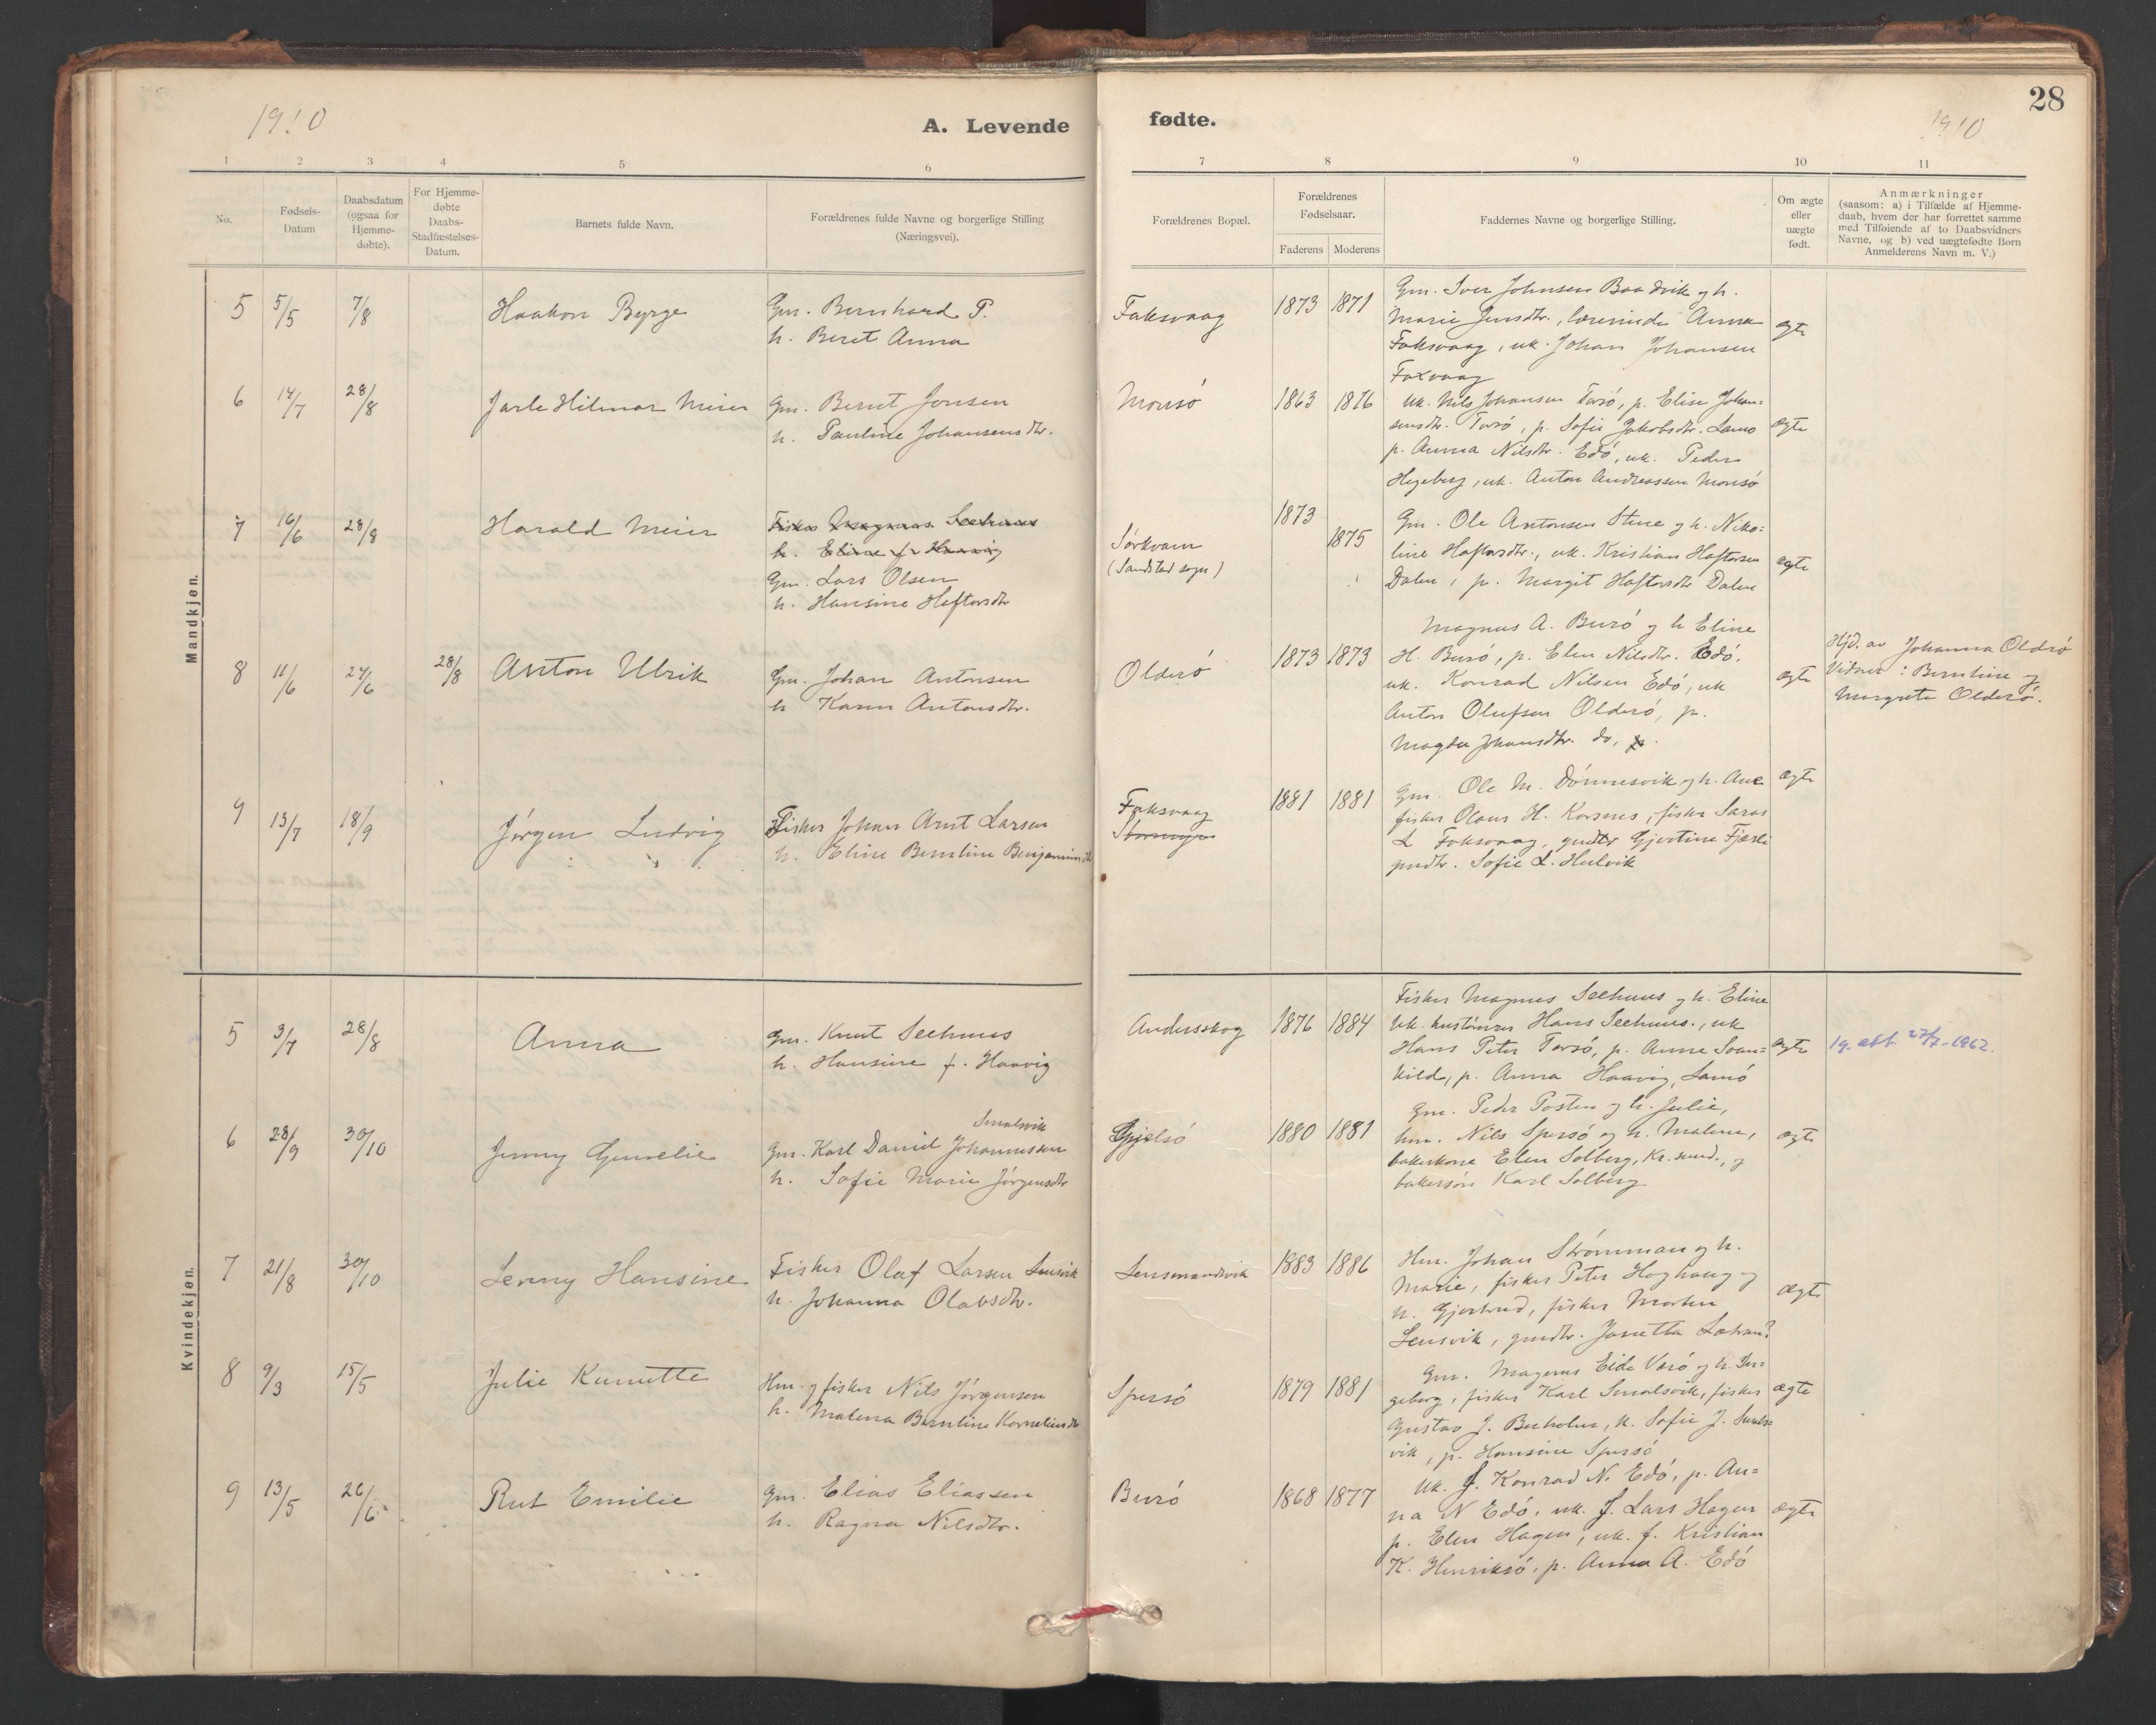 1910
A. Levende
fødte.
28
1910
1
2
3
4
5
6
7
8
9
10
11
No.
Fødsels-
Datum
Daabsdatum
(ogsaa for
Hjemme-
døbte).
For Hjemme-
døbte
Daabs-
Stadfæstelses-
Datum.
Barnets fulde Navn.
Forældrenes fulde Navne og borgerlige Stilling
(Næringsvei).
Forældrenes Bopæl.
Forældrenes
Fødselsaar.
Faderens
Moderens
Faddernes Navne og borgerlige Stilling.
Om ægte
eller
uægte
født.
Anmærkninger
(saasom: a) i Tilfælde af Hjemme-
daab, hvem der har forrettet samme
med Tilføiende af to Daabsvidners
Navne, og b) ved uægtefødte Børn
Anmelderens Navn m. V.)
Mandkjøn.
5 5/5 7/8 Haakon Byrge
Gm. Bernhard P.
h. Beret Anna
Faksvaag 1873 1871
Gm. Iver Johnsen Baadvik og h.
Marie Jensdtr., lærerinde Anna
Faksvaag, uk. Johan Johansen
Faxvaag
ægte
6 14/7 28/8 Jarle Hilmar Meier
Gm. Bernt Jonsen
h. Pauline Johansensdtr.
Monsö 1863 1876
uk. Nils Johansen Tarö, p. Elise Johan=
sensdtr. Tarö, p. Sofie Jakobsdtr. Lamo
p. Anna Nilsdtr. Edö, uk. Peder
Hegeberg, uk. Anton Andreassen Monsö
ægte
7 16/6 28/8 Harald Meier
Fisker Magnus Seehuus
h. Eline f. Haavig
Gm. Lars Olsen
h. Hansine Haftorsdtr
Sørkvam
(Sandstad sogn)
1873 1875
Gm. Ole Antonsen Stene og h. Niko=
line Haftorsdtr., uk. Kristian Haftorsen
Dalen, p. Margit Haftorsdtr Dalen
ægte
8 11/6 24/6 28/8 Anton Ulrik
Gm. Johan Antonsen
h Karen Antonsdtr.
Olderö 1873 1873
Magnus A. Burö og h Eline
H. Burö, p. Elen Nilsdtr. Edö,
uk. Konrad Nilsen Edö, uk
Anton Olufsen Olderö, p.
Magda Johansdtr. do, p.
ægte
Hjd. av Johanna Olderö
Vidner: Berntine og
Margrete Olderö.
9 13/7 18/9 Jörgen Ludvig
Fisker Johan Arnt Larsen
h. Eline Berntine Benjaminsdtr
Faksvaag
1881 1881
Gm. Ole M. Dönnesvik og h. Ane
fisker Olaus H. Korsnes, fisker Saras
L Faksvaag, gmdtr Gjertine Fjæsli
gmdtr. Sofie L. Hulvik
ægte
Kvindekjøn.
5 3/7 28/8 Anna
Gm. Knut Seehuus
h. Hansine f. Haavig
Andersskog 1876 1884
Fisker Magnus Seehuus og h. Eline
uk. Hans Seehuus., uk
Hans Peter Tarsö, p. Anne Svan=
kild, p. Anna Haavig, Lamö
ægte
1g. att. 27/7-1962.
6 28/9 30/10 Jenny Gunelie
Smalsvik
Gm. Karl Daniel Johannessen
h. Sofie Marie Jörgensdtr
Gjelsö 1880 1881
Gm. Peder Posten og h. Julie,
hm. Nils Spersö og h. Malene,
bakerkone Elen Solberg, Kr.sund., og
bakersön Karl Solberg
ægte
7 21/8 30/10 Jenny Hansine
Fisker Olaf Larsen Lensvik
h. Johanna Olabsdtr.
Lensmandsvik 1883 1886
Hm. Johan Strömman og h.
Marie, fisker Peter Haghaug og
h. Gjertrud, fisker Morten
Lensvik, gmdtr. Janetta
ægte
8 9/3 15/5 Julie Kunutte
Hm. og fisker Nils Jörgensen
h. Malena Berntine Korneliusdtr
Spersö 1879 1881
Gm. Magnus Eide Værö og h. In=
geborg, fisker Karl Smalsvik, fisker
Gustav J. Burholm, h. Sofie J. Smals=
vik, p. Hansine Spersö
ægte
9 13/5 26/6 Rut Emilie
Gm. Elias Eliassen
h. Ragna Nilsdtr.
Burö 1868 1877
uk. f. Konrad N. Edö, p. An=
na N Edö, uk. f. Lars Hagen
p. Elen Hagen, uk. f. Kristian
K. Henriksö, p. Anna A. Edö
ægte